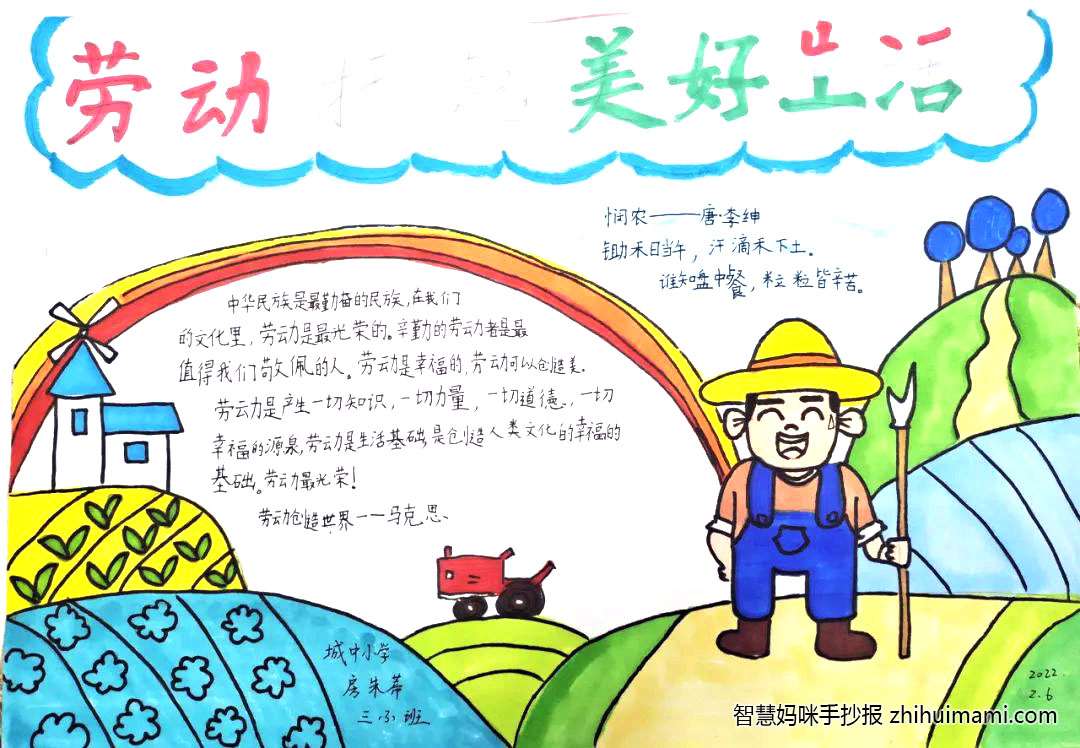 劳动 托起 美好生活
悯农——唐·李绅
锄禾日当午，汗滴禾下土。
谁知盘中餐，粒粒皆辛苦。
中华民族是最勤奋的民族，在我们
的文化里，劳动是最光荣的。辛勤的劳动者是最
值得我们敬佩的人。劳动是幸福的，劳动可以创造美.
劳动是产生一切知识，一切力量，一切道德、，一切
幸福的源泉，劳动是生活基础，是创造人类文化的幸福的
基础。劳动最光荣！
劳动创造世界——马克思、
城中小学
房朱蒂
三 班
2022.
2.6
智慧妈咪手抄报 zhihuimami.com